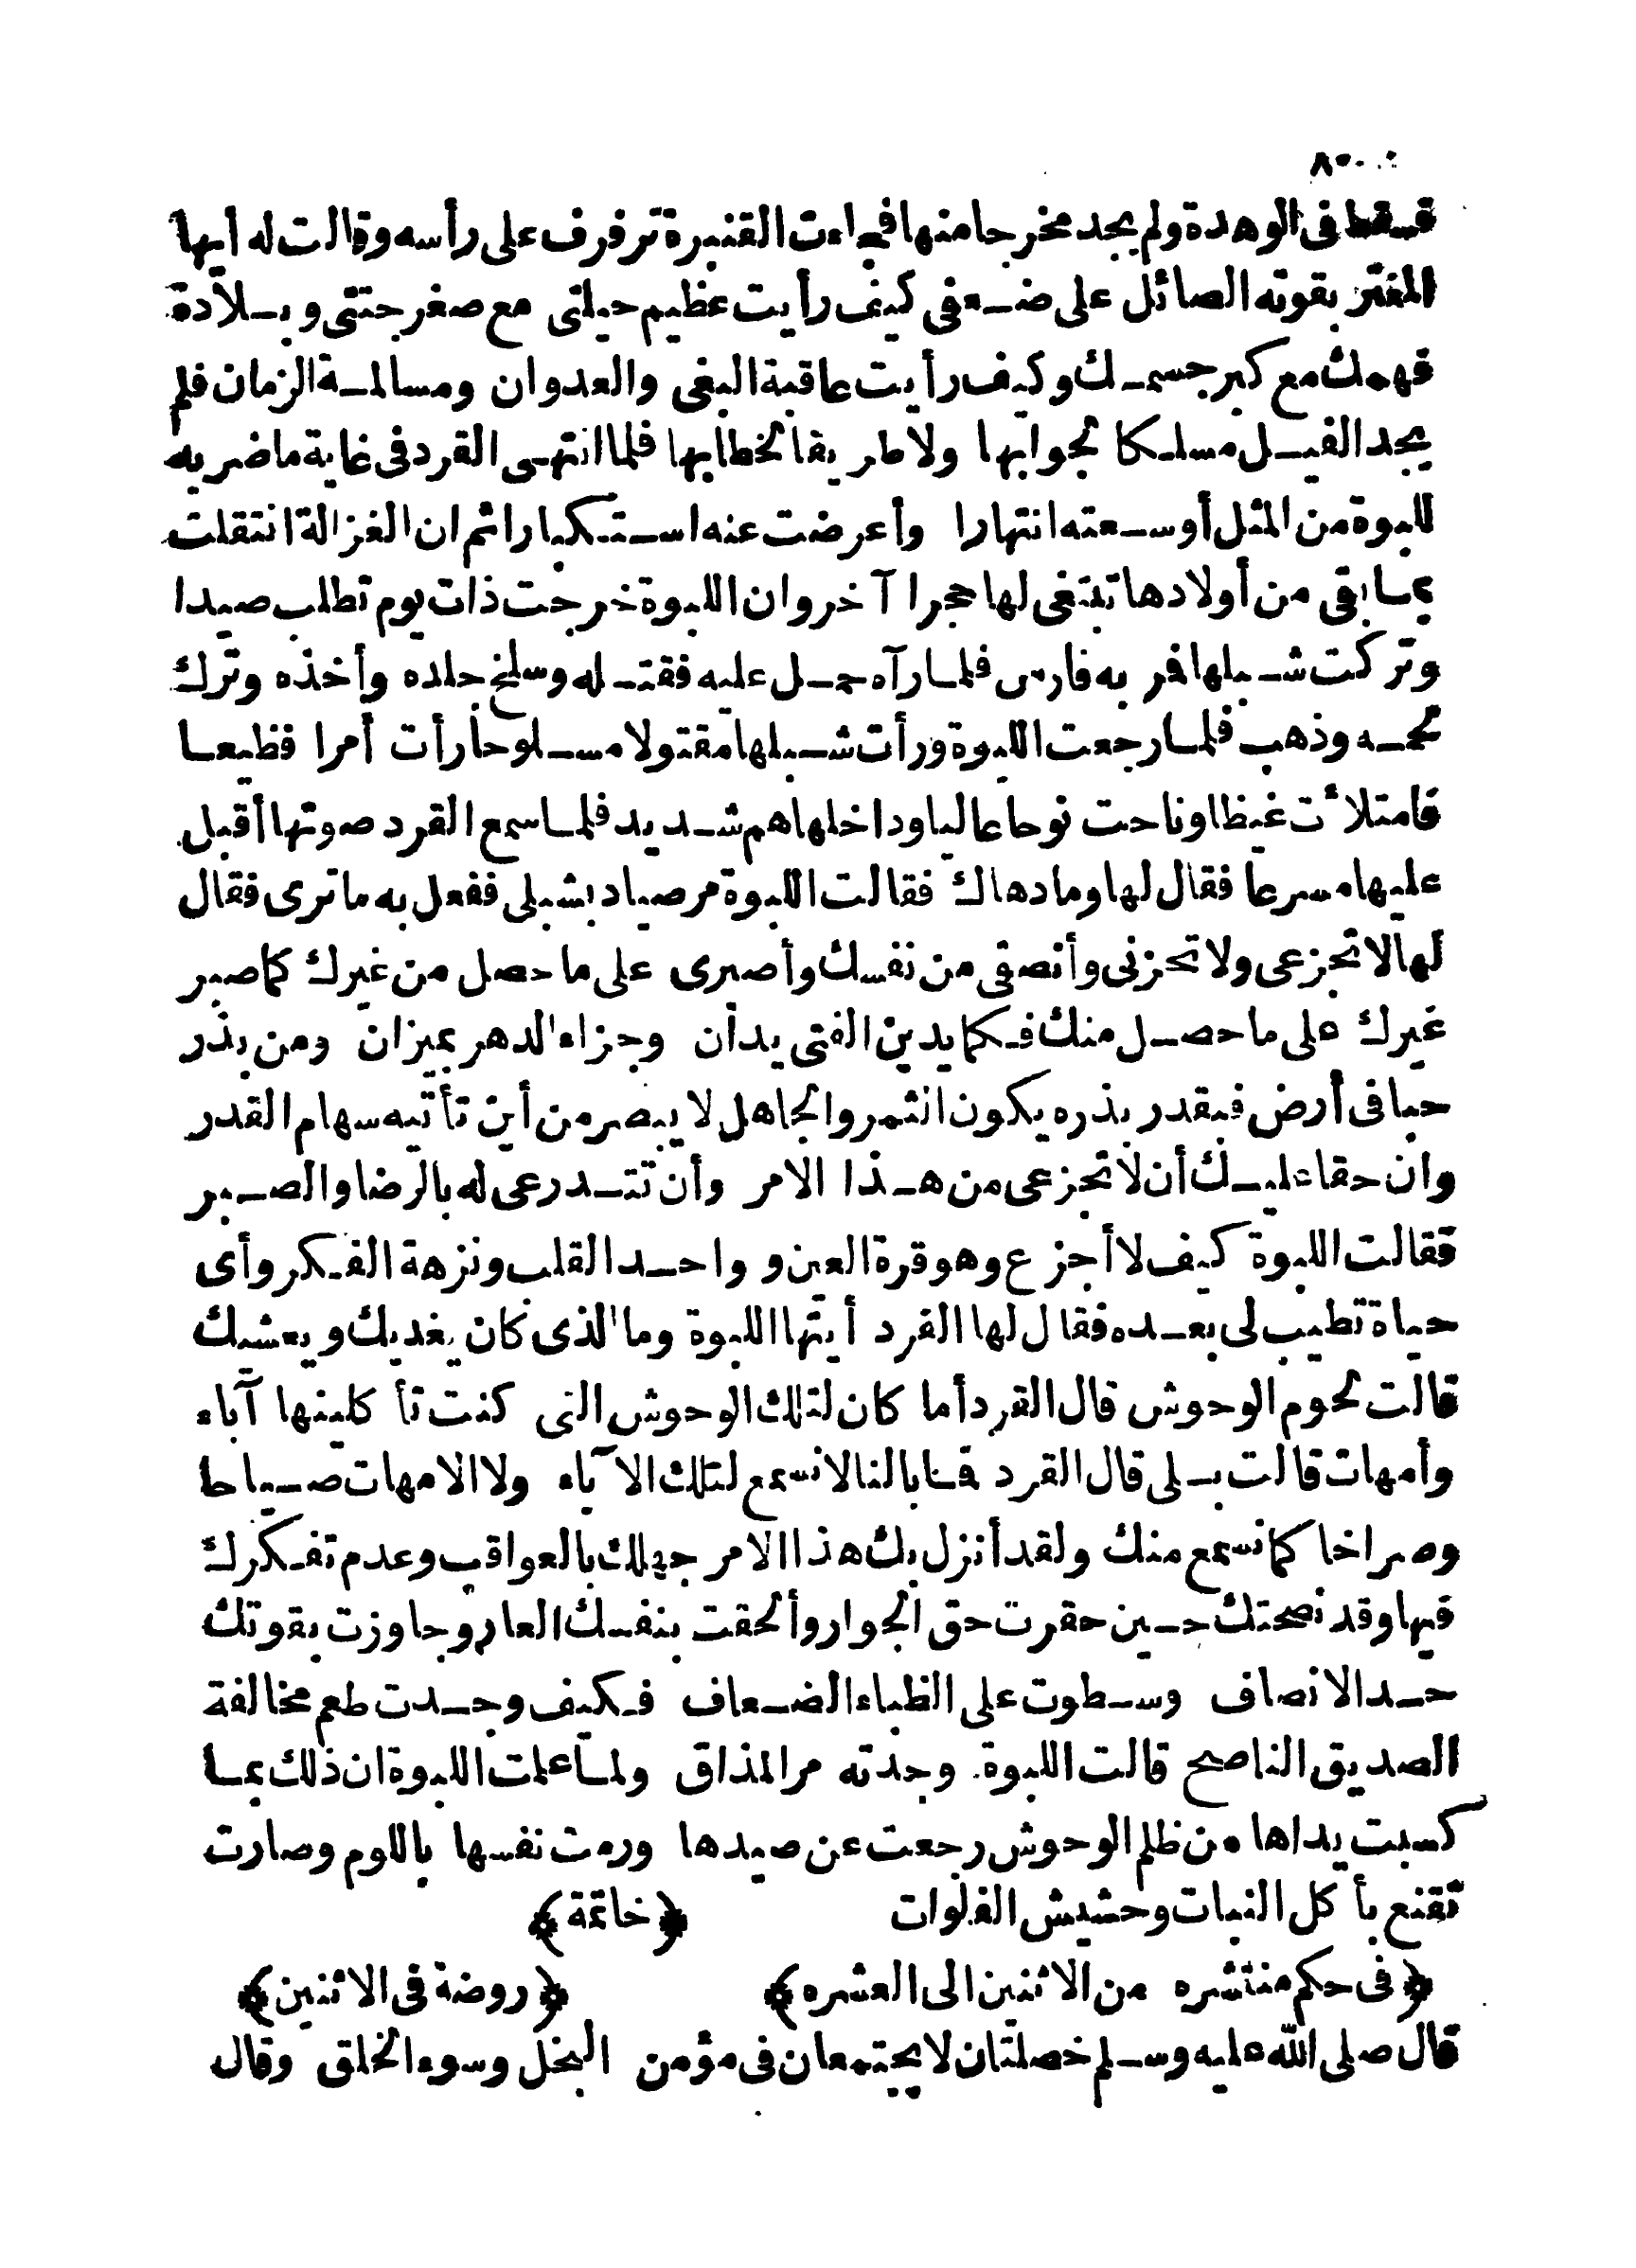 ٨٠
فسقط فى الوهدة ولم يجد مخرجا منها فجاءت القنبرة ترفرف على رأسه وقالت له أيها
المغتر بقوته الصائل على ضعفى كيف رأيت عظيم حيلتى مع صغر جثتى وبلادة
فهمك مع كبر جسمك وكيف رأيت عاقبة البغى والعدوان ومسالمة الزمان فلم
يجد الفيل مسلكا لجوابها ولا طريقا لخطابها فلما انتهى القرد فى غاية ما ضربه
للبوة من المثل أوسعته انتهارا وأعرضت عنه استكبارا ثم ان الغزالة انتقلت
بما بقى من أولادها تبتغى لها حجرا آخر وان اللبوة خرجت ذات يوم تطلب صيدا
وتركت شبلها فمر به فارس فلما رآه حمل عليه فقتله وسلخ جلده وأخذه وترك
لحمه وذهب فلما رجعت اللبوة ورأت شبلها مقتولا مسلوخا رأت أمرا فظيعا
فامتلأت غيظا وناحت نوحا عاليا وداخلها هم شديد فلما سمع القرد صوتها أقبل
عليها مسرعا فقال لها وما دهاك فقالت اللبوة مر صياد بشبلى ففعل به ما ترى فقال
لها لا تجزعى ولا تحزنى وأنصفى من نفسك وأصبرى على ما حصل من غيرك كما صبر
غيرك على ما حصل منك فكما يدين الفتى يدان وجزاء الدهر بميزان ومن بذر
حبا فى أرض فبقدر بذره يكون الثمر والجاهل لا يبصر من أين تأتيه سهام القدر
وان حقا عليك أن لا تجزعى من هذا الامر وأن تتدرعى له بالرضا والصبر
فقالت اللبوة كيف لا أجزع وهو قرة العين وواحد القلب ونزهة الفكر وأى
حياة تطيب لى بعده فقال لها القرد أيتها اللبوة وما الذى كان يغديك ويعشيك
قالت لحوم الوحوش قال القرد أما كان لتلك الوحوش التى كنت تأكلينها آباء
وأمهات قالت بلى قال القرد فما بالنا لا نسمع لتلك الآباء ولا الامهات صياحا
وصراخا كما نسمع منك ولقد أنزل بك هذا الامر جهلك بالعواقب وعدم تفكرك
فيها وقد نصحتك حين حقرت حق الجوار وألحقت بنفسك العار وجاوزت بقوتك
حد الانصاف وسطوت على الظباء الضعاف فكيف وجدت طعم مخالفة
الصديق الناصح قالت اللبوة. وجدته مر المذاق ولما علمت اللبوة ان ذلك بما
كسبت يداها من ظلم الوحوش رجعت عن صيدها ورمت نفسها باللوم وصارت
تقنع بأكل النبات وحشيش الفلوات ﴿خاتمة﴾
﴿فى حكم منتشره من الاثنين الى العشره﴾ ﴿روضة فى الاثنين﴾
قال صلى الله عليه وسلم خصلتان لا يجتمعان فى مؤمن البخل وسوء الخلق وقال